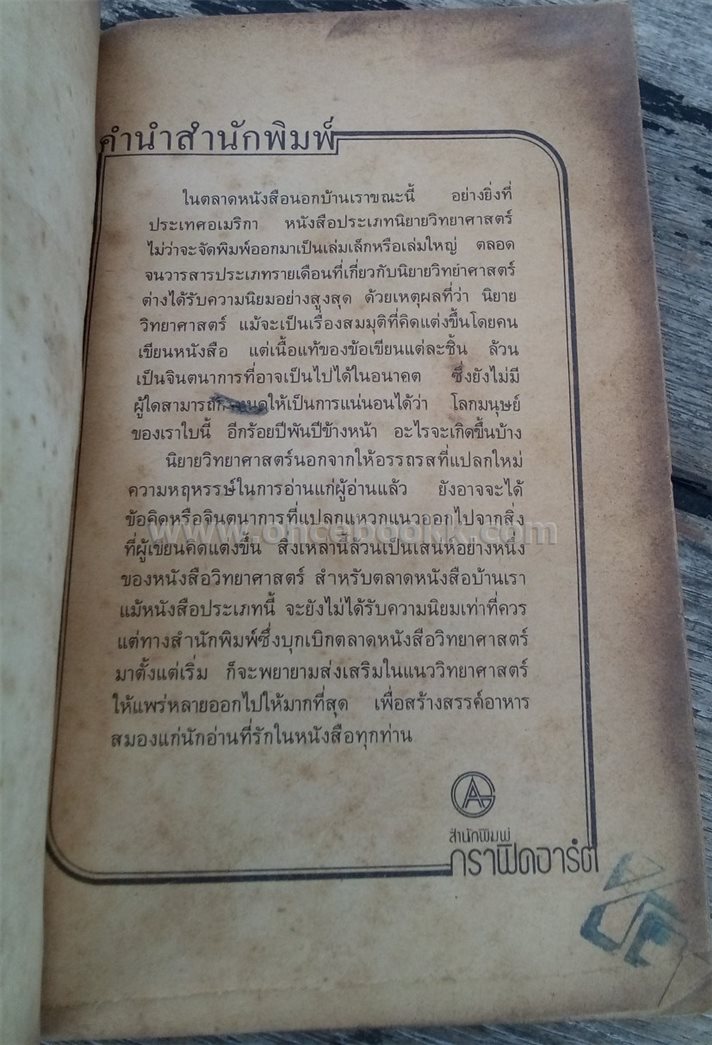 คำนำสำนักพิมพ์
ในตลาดหนังสือนอกบ้านเราขณะนี้ อย่างยิ่งที่
ประเทศอเมริกา หนังสือประเภทนิยายวิทยาศาสตร์
ไม่ว่าจะจัดพิมพ์ออกมาเป็นเล่มเล็กหรือเล่มใหญ่ ตลอด
จนวารสารประเภทรายเดือนที่เกี่ยวกับนิยายวิทยาศาสตร์
ต่างได้รับความนิยมอย่างสูงสุด ด้วยเหตุผลที่ว่า นิยาย
วิทยาศาสตร์ แม้จะเป็นเรื่องสมมุติที่คิดแต่งขึ้นโดยคน
เขียนหนังสือ แต่เนื้อแท้ของข้อเขียนแต่ละชิ้น ล้วน
เป็นจินตนาการที่อาจเป็นไปได้ในอนาคต ซึ่งยังไม่มี
ผู้ใดสามารถให้เป็นการแน่นอนได้ว่า โลกมนุษย์
ของเราใบนี้ อีกร้อยปีพันปีข้างหน้า อะไรจะเกิดขึ้นบ้าง
นิยายวิทยาศาสตร์นอกจากให้อรรถรสที่แปลกใหม่
ความหฤหรรษ์ในการอ่านแก่ผู้อ่านแล้ว ยังอาจจะได้
ข้อคิดหรือจินตนาการที่แปลกแหวกแนวออกไปจากสิ่ง
www.oncebookk.com
ที่ผู้เขียนคิดแต่งขึ้น สิ่งเหล่านี้ล้วนเป็นเสน่ห์อย่างหนึ่ง
ของหนังสือวิทยาศาสตร์ สำหรับตลาดหนังสือบ้านเรา
แม้หนังสือประเภทนี้ จะยังไม่ได้รับความนิยมเท่าที่ควร
แต่ทางสำนักพิมพ์ซึ่งบุกเบิกตลาดหนังสือวิทยาศาสตร์
มาตั้งแต่เริ่ม ก็จะพยายามส่งเสริมในแนววิทยาศาสตร์
ให้แพร่หลายออกไปให้มากที่สุด เพื่อสร้างสรรค์อาหาร
สมองแก่นักอ่านที่รักในหนังสือทุกท่าน
สำนักพิมพ์
กราฟิคอาร์ต